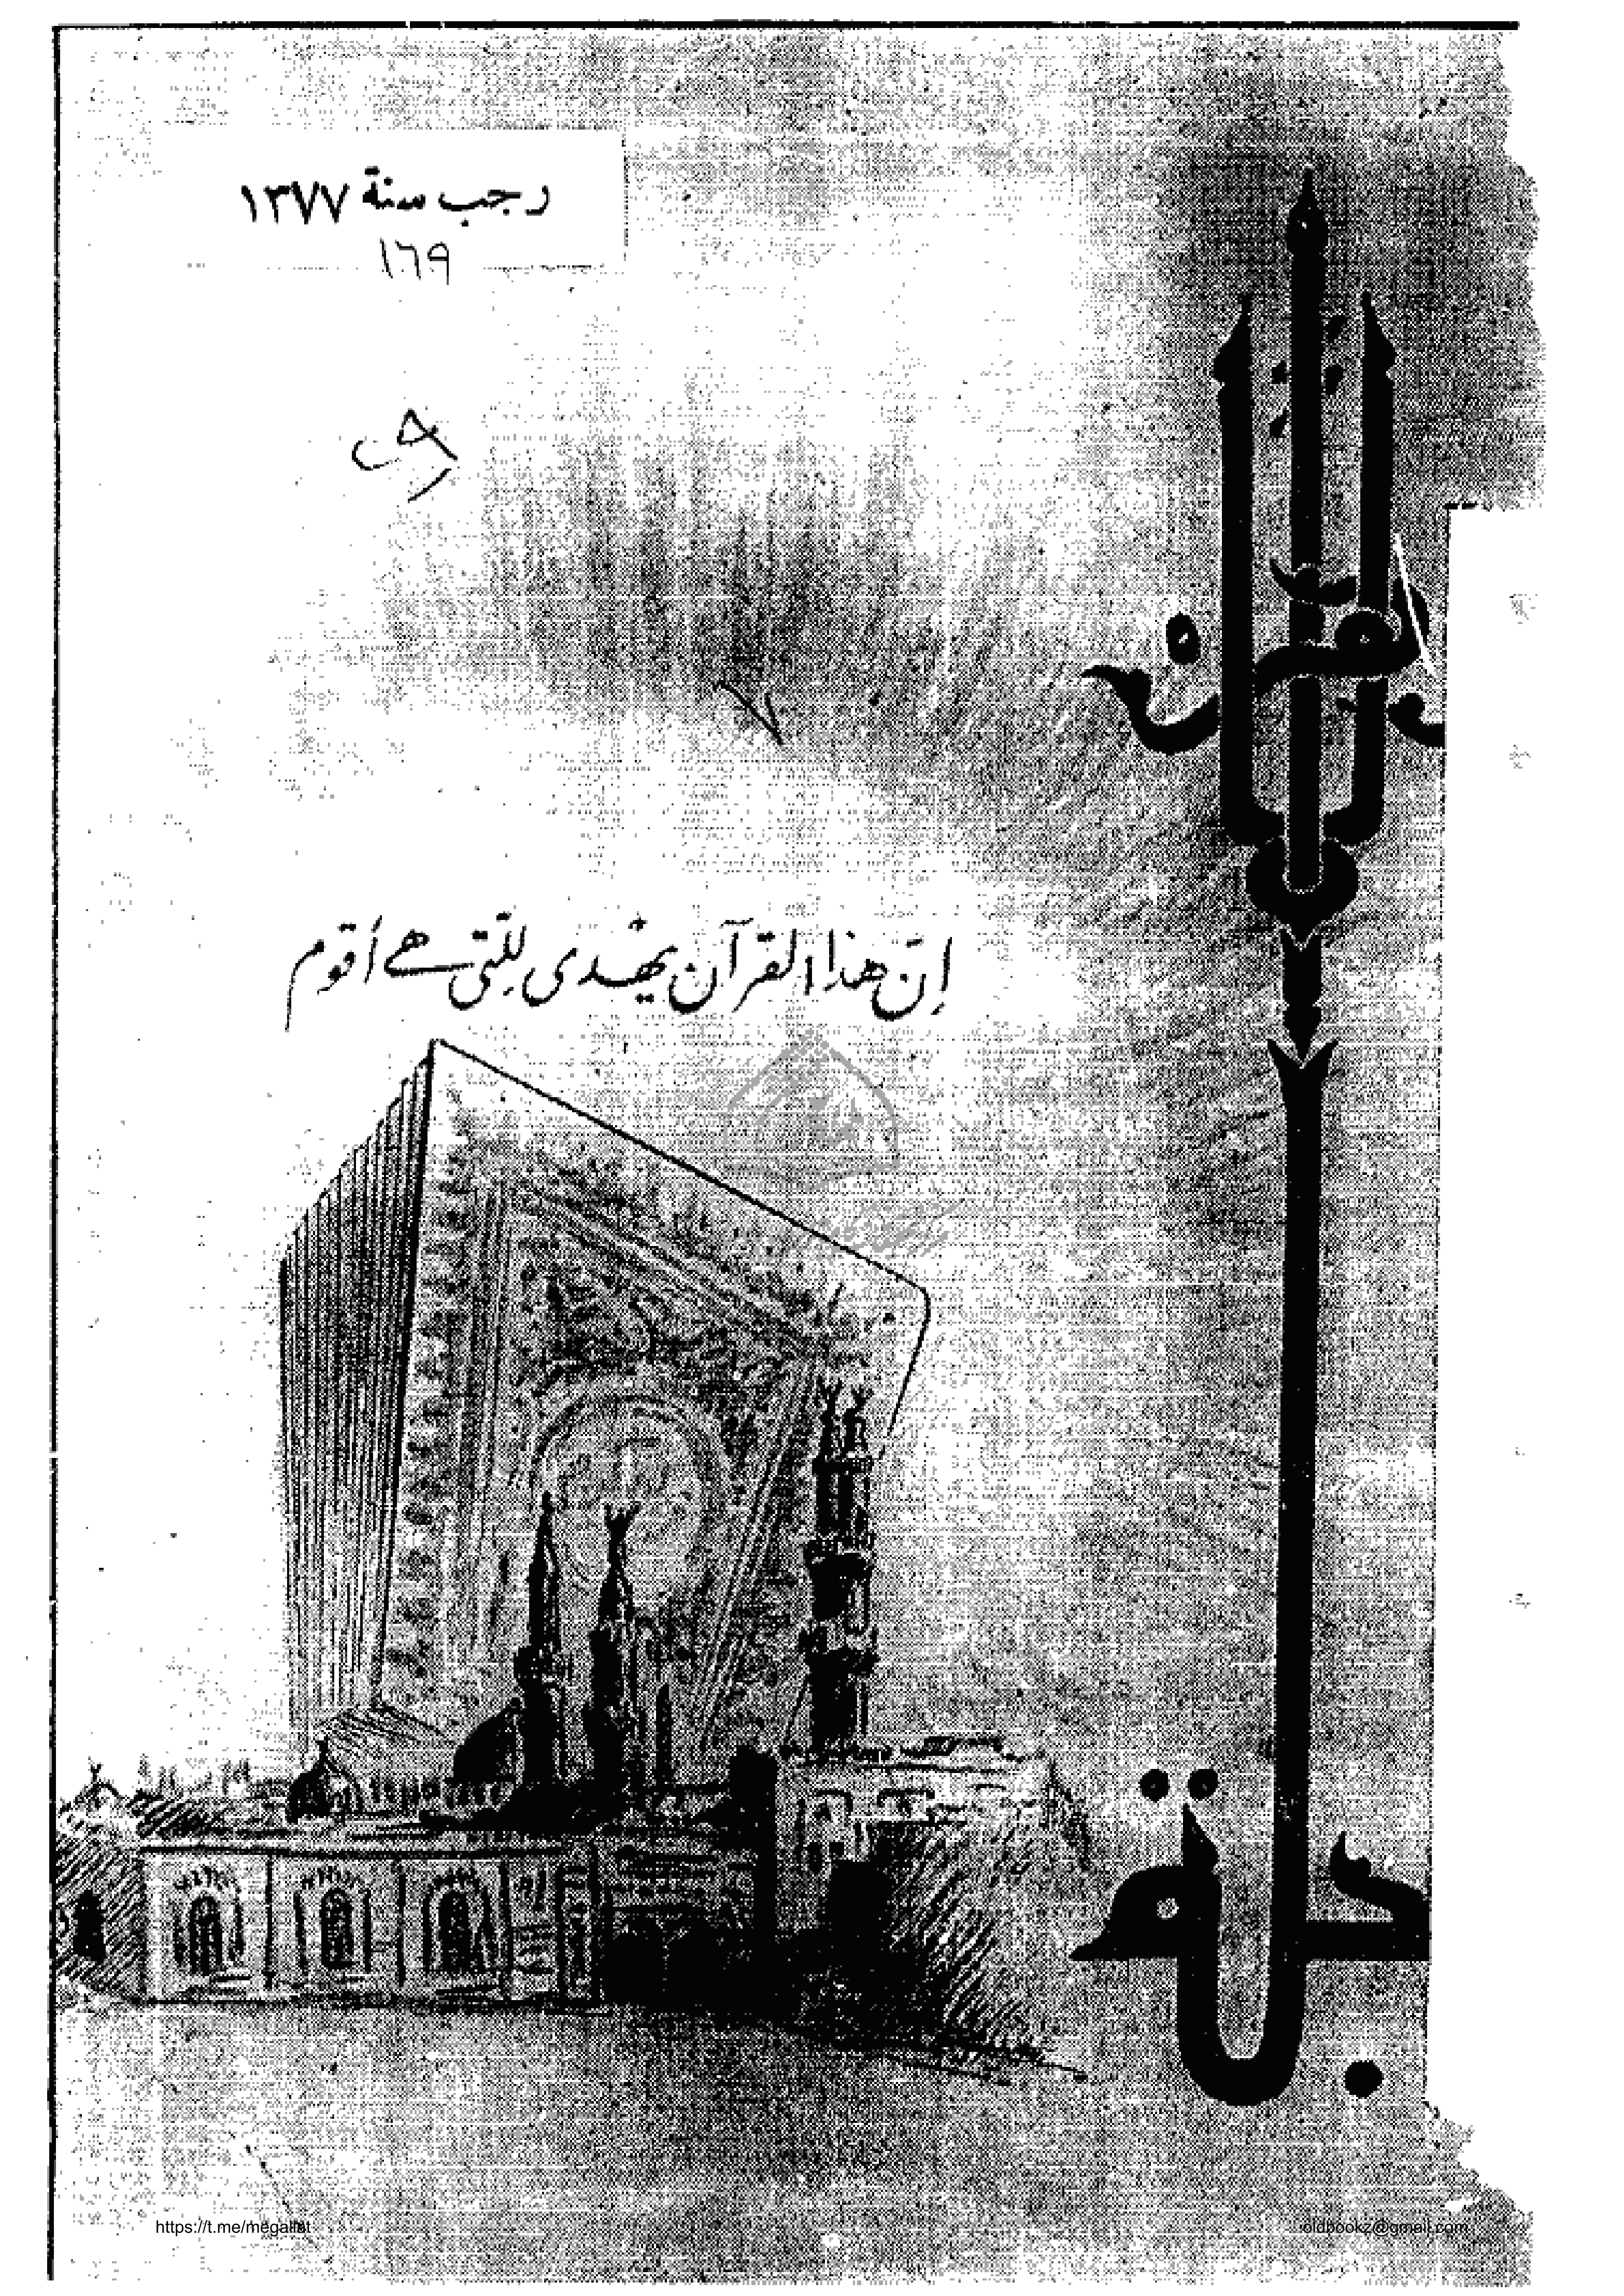 رجب سنة ١٣٧٧
١٦٩
إنّ هذا القرآن يهدى للتى هى أقوم
مجلة
https://t.me/megallat
oldbookz@gmail.com